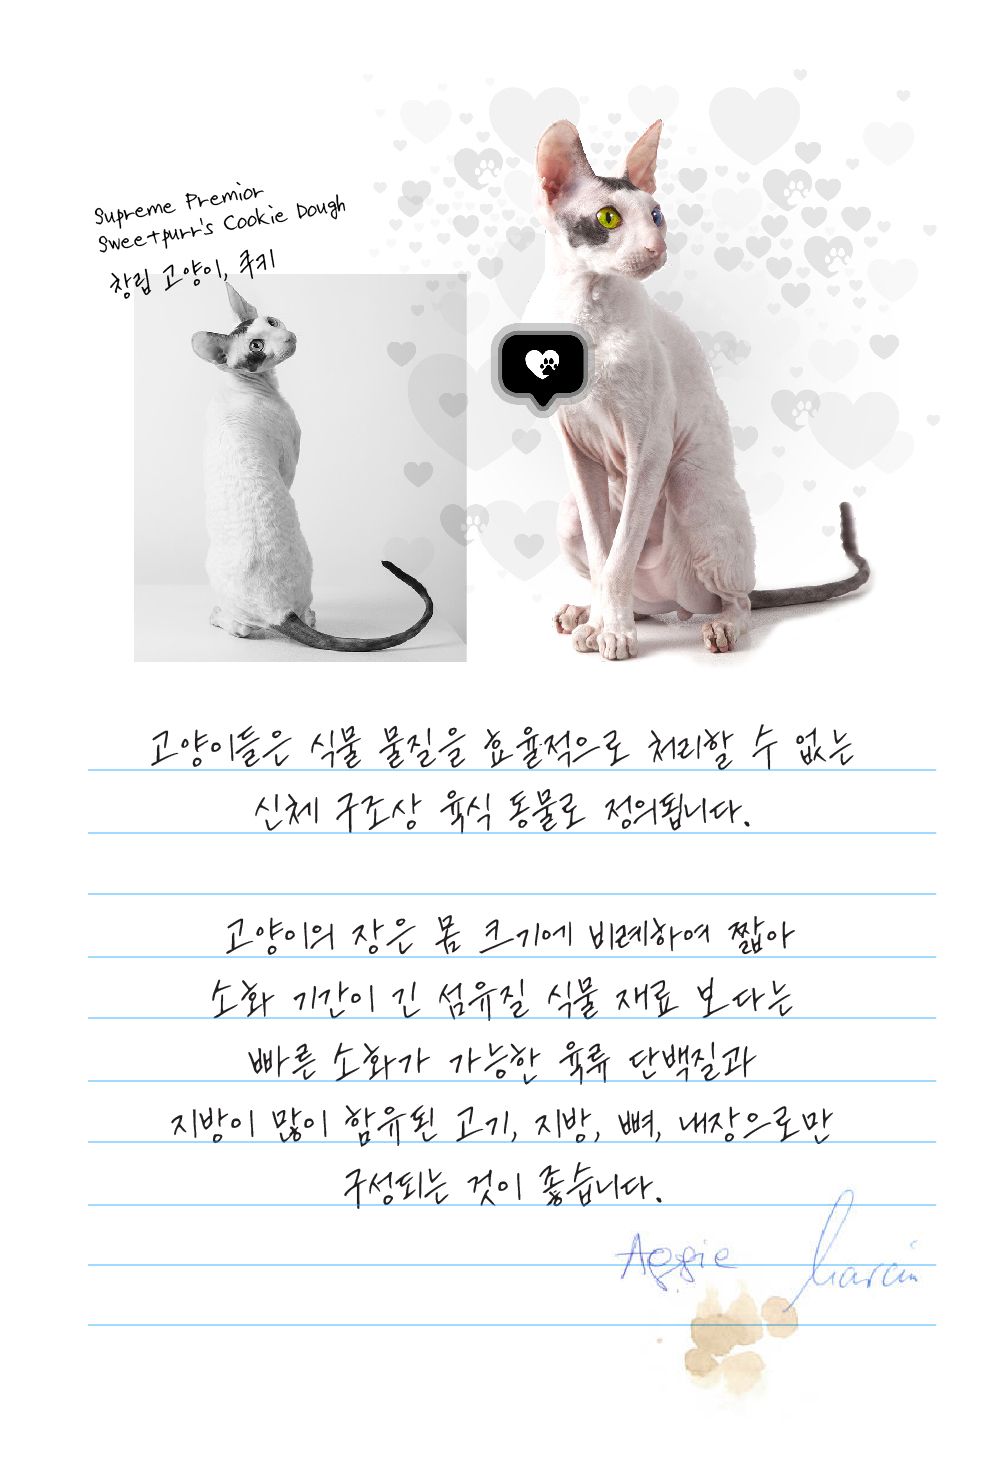 Supreme Premior
Sweetpurr's Cookie Dough
창립 고양이, 쿠키
고양이들은 식물 물질을 효율적으로 처리할 수 없는
신체 구조상 육식 동물로 정의됩니다.
고양이의 장은 몸 크기에 비례하여 짧아
소화 기간이 긴 섬유질 식물 재료 보다는
빠른 소화가 가능한 육류 단백질과
지방이 많이 함유된 고기, 지방, 뼈, 내장으로만
구성되는 것이 좋습니다.
Aggie Marcin